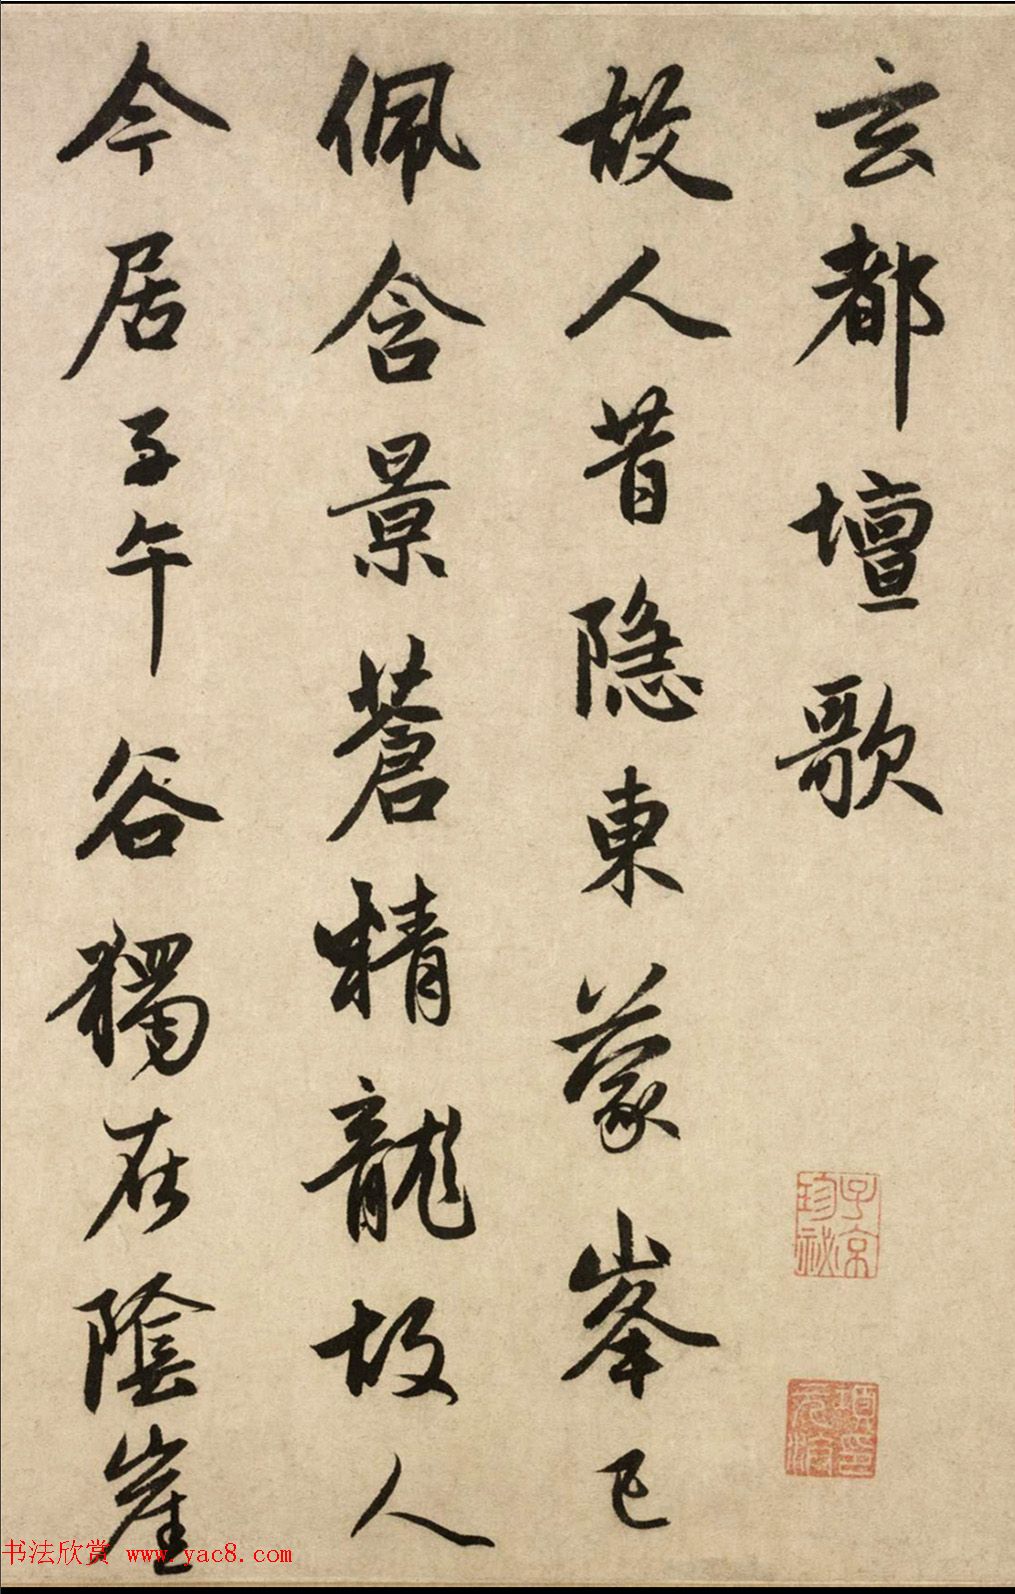 玄都壇歌
故人昔隐東蒙峯已
佩含景蒼精龍故人
今居子午谷獨在陰崖
子京
珍祕
項元
汴印
书法欣赏 www.yac8.com